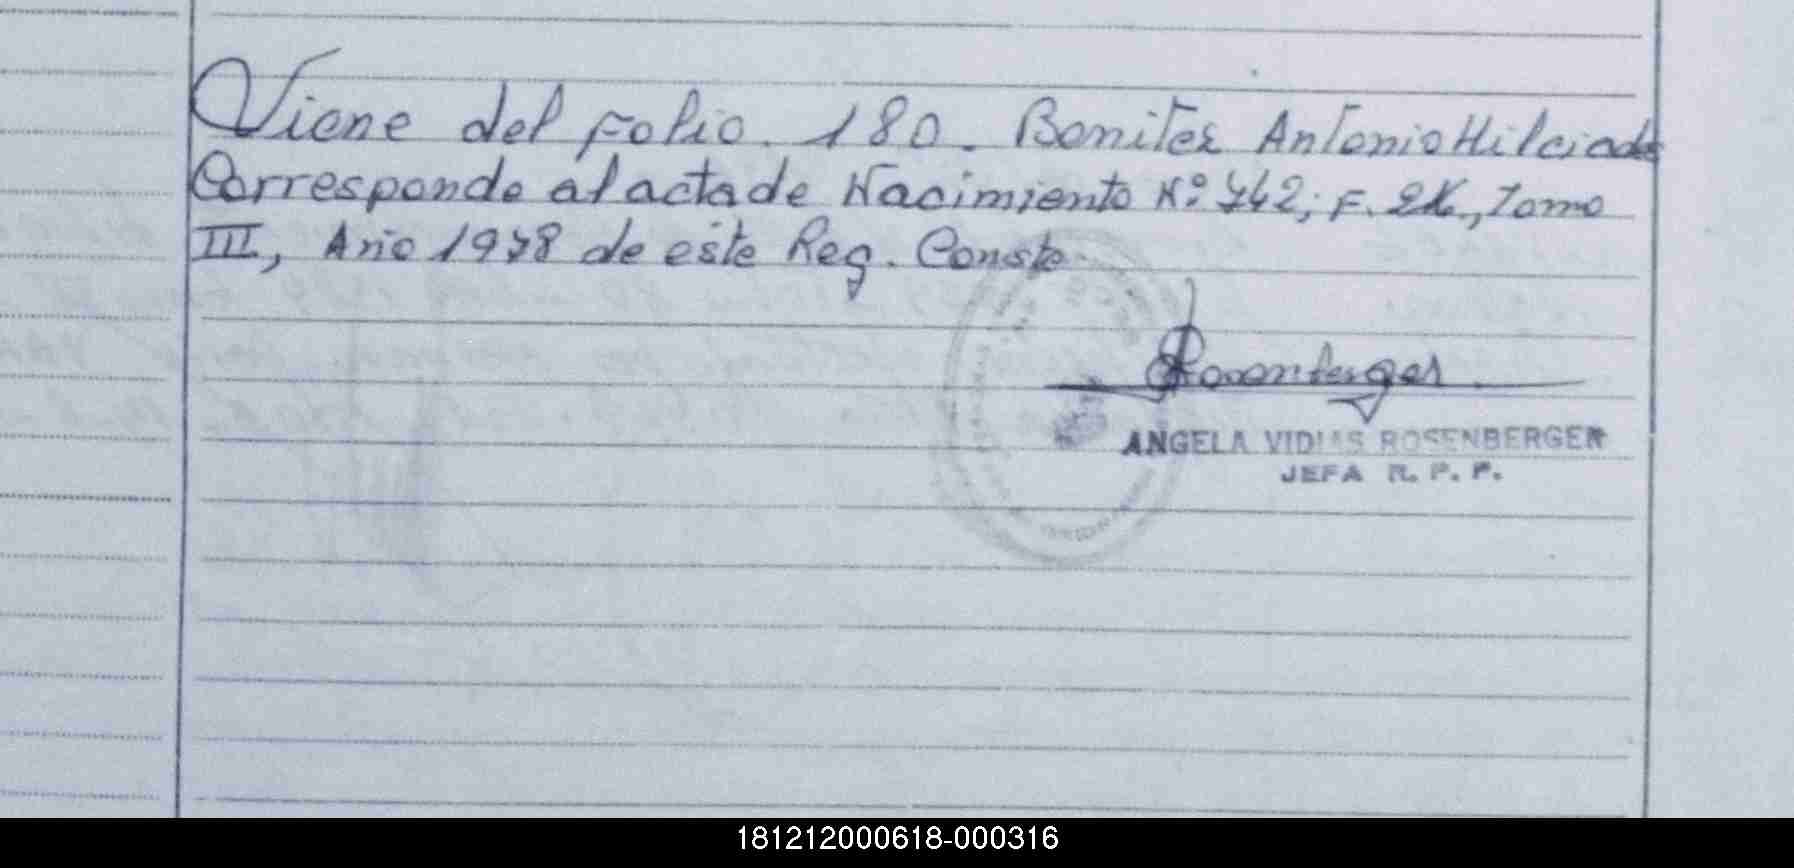 Viene del Folio. 180. Benitez Antonio Hilciade
Corresponde al acta de Nacimiento Nº 742, F. Tomo
III, Año 1978 de este Reg. Conste
Rosenberger
ANGELA VIDIAS ROSENBERGER
JEFA R. P. P.
181212000618-000316